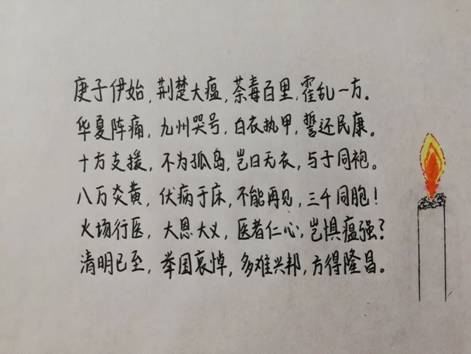 庚子伊始，荆楚大瘟，荼毒百里，霍乱一方。
华夏阵痛，九州哭号，白衣执甲，誓还民康。
十方支援，不为孤岛，岂曰无衣，与子同袍。
八万炎黄，伏病于床，不能再见，三千同胞！
火场行医，大恩大义，医者仁心，岂惧瘟强？
清明已至，举国哀悼，多难兴邦，方得隆昌。